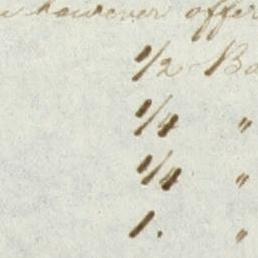 however offer
1/2 Ba
1/4 "
1/4 "
1. "